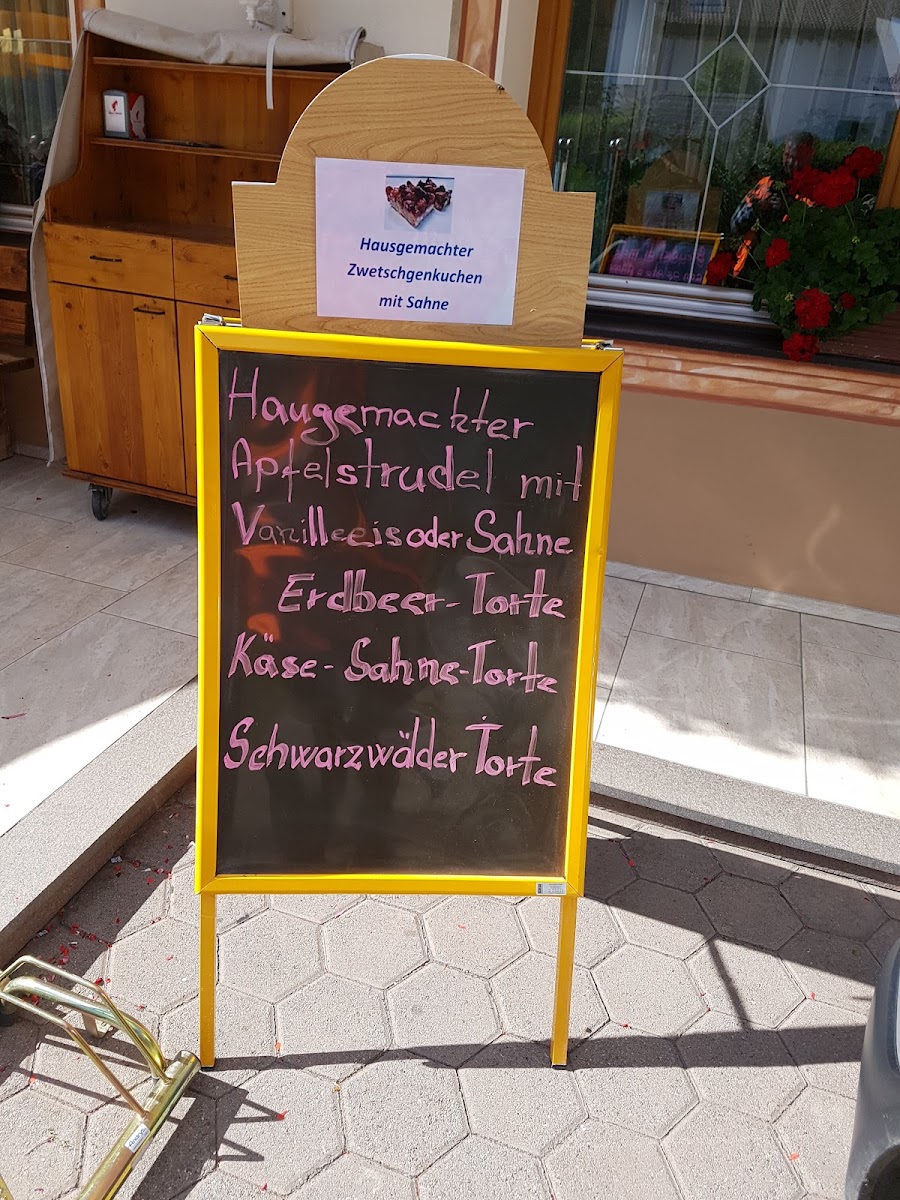 Hausgemachter
Zwetschgenkuchen
mit Sahne
Haugemachter
Apfelstrudel mit
Vanilleeis oder Sahne
Erdbeer-Torte
Käse-Sahne-Torte
Schwarzwälder Torte